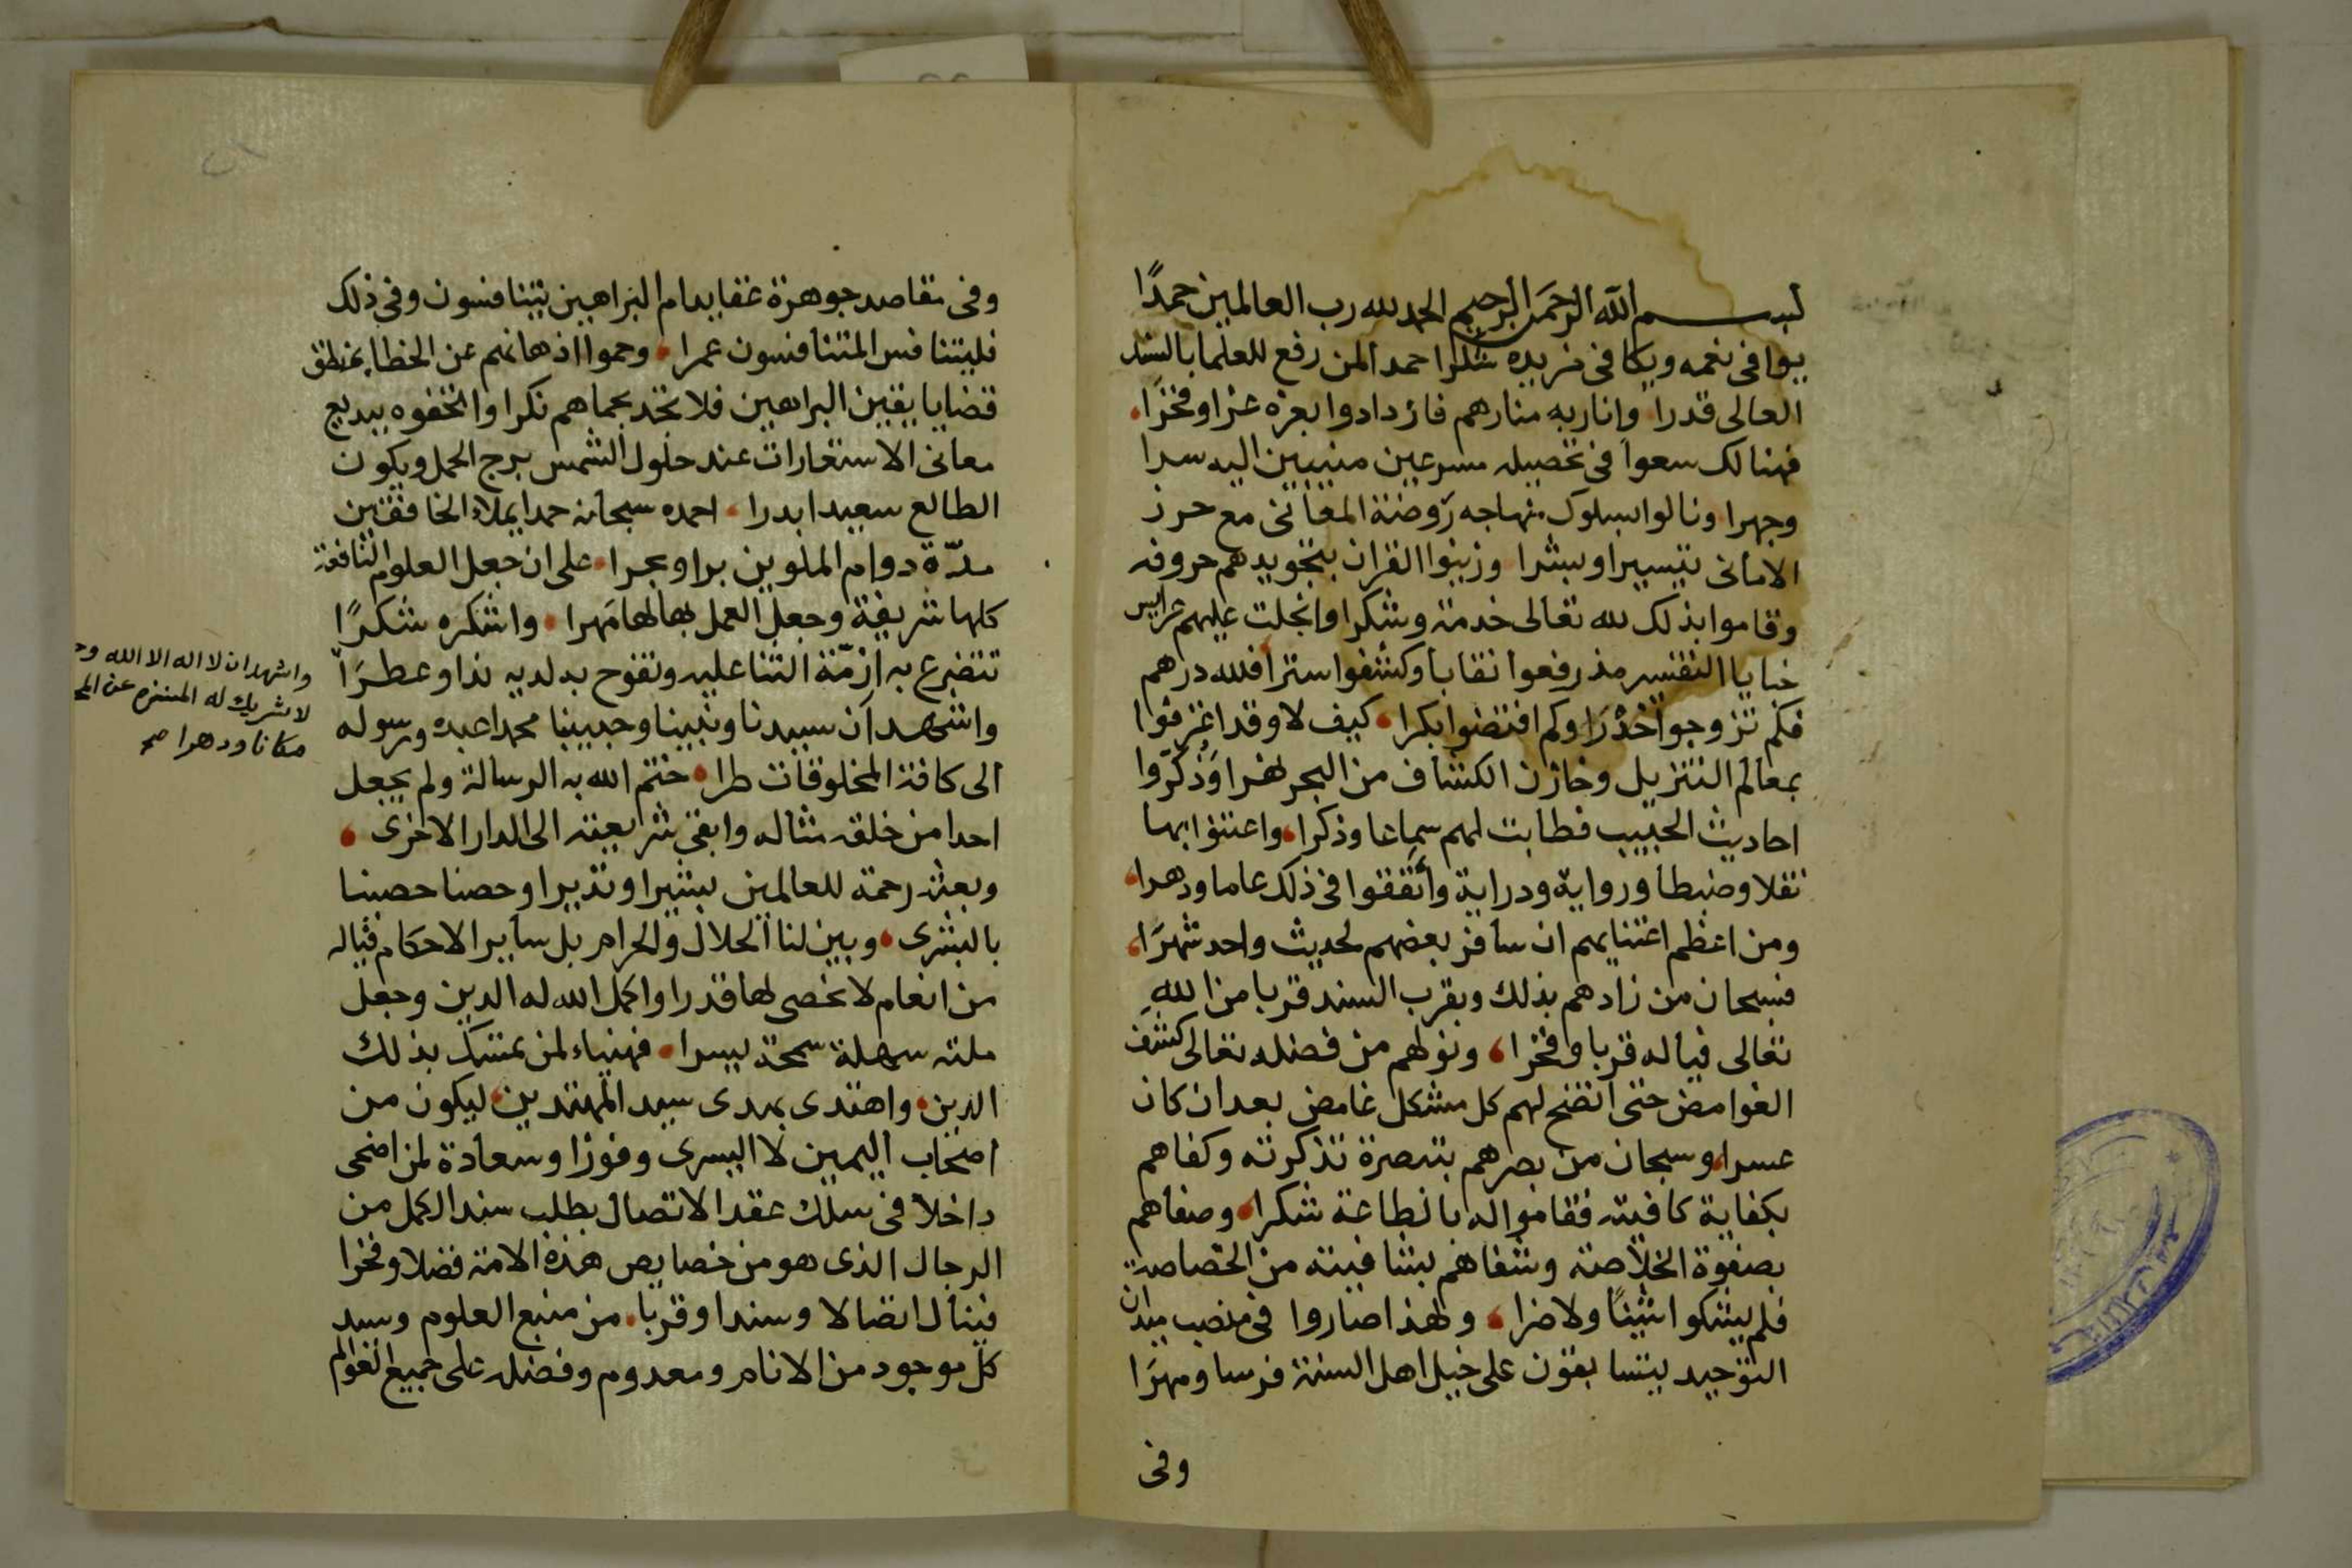 بسم الله الرحمن الرحيم الحمد لله رب العالمين حمدًا
يوافى نعمه ويكافى مزيده شكرا حمدا لمن رفع للعلما بالسند
العالى قدرا وانار به منارهم فازدادوا بعزه عزا وفخرًا
فهنالك سعوا فى تحصيله مسرعين منيبين اليه سرا
وجهرا ونالوا بسلوك منهاجه روضة المعانى مع حرز
الامانى تيسيرا وبشرا وزينوا القران بتجويدهم حروفه
وقاموا بذلك لله تعالى خدمة وشكرا وانجلت عليهم عرايس
خبايا التفسير مذ رفعوا نقابا وكشفوا سترا فلله درهم
فكم تزوجوا خدرًا وكم افتضوا بكرا كيف لا وقد اغترفوا
بمعالم التنزيل وخازن الكشاف من البحر نهرا وذكروا
احاديث الحبيب فطابت لهم سماعا وذكرا واعتنوا بها
نقلا وضبطا ورواية ودراية وأنفقوا فى ذلك عاما ودهرا
ومن اعظم اعتنايهم ان سافر بعضهم لحديث واحد شهرًا
فسبحان من زادهم بذلك وبقرب السند قربا من اللهِ
تعالى فياله قربا وفخرا ونولهم من فضله تعالى كشف
الغوامض حتى اتضح لهم كل مشكل غامض بعد ان كان
عسرا وسبحان من بصرهم بتبصرة تذكرته وكفاهم
بكفاية كافيته فقاموا له بالطاعة شكرا وصفاهم
بصفوة الخلاصة وشفاهم بشافيته من الخصاصة
فلم يشكوا شيئًا ولا ضرا ولهذا صاروا فى منصب ميدان
التوحيد يتسابقون على خيل اهل السنة فرسا ومهرًا
وفى
وفى مقاصد جوهرة عقايد ام البراهين يتنافسون وفى ذلك
فليتنافس المتنافسون عمرا وحموا اذهانهم عن الخطا بمنطق
قضايا يقين البراهين فلا تجد بحماهم نكرا واتحفوه ببديع
معانى الاستعارات عند حلول الشمس برج الحمل ويكون
الطالع سعيدا بدرا احمده سبحانه حمدا يملاء الخافقين
مدّة دوام الملوين برا وبحرا على ان جعل العلوم النافعة
كلها شريفة وجعل العمل بها لها مهرا واشكره شكرًا
تتضرع به ازمّة الثنا عليه وتفوح به لديه ندا وعطرًا
واشهد ان لا اله الا الله وحـ
لا شريك له المنزه عن المـ
مكانا ودهرا صح
واشهد أن سيدنا ونبينا وحبيبنا محمدا عبده ورسوله
الى كافة المخلوقات طرا ختم الله به الرسالة ولم يجعل
احدا من خلقه مثاله وابقى شريعته الى الدار الاخرى
وبعثه رحمة للعالمين بشيرا ونذيرا وحصنا حصينا
بالبشرى وبين لنا الحلال والحرام بل ساير الاحكام فياله
من انعام لا نحصى لها قدرا واكمل الله له الدين وجعل
ملته سهلة سمحة يسرا فهنياء لمن تمسك بذلك
الدين واهتدى بهدى سيد المهتدين ليكون من
اصحاب اليمين لا اليسرى وفوزا وسعادة لمن اضحى
داخلا فى سلك عقد الاتصال بطلب سند الكمل من
الرجال الذى هو من خصايص هذه الامة فضلا وفخرا
فينال اتصالا وسندا وقربا من منبع العلوم وسيد
كل موجود من الانام ومعدوم وفضله على جميع العوالم